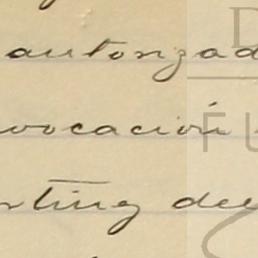 autorizad
vocación
rting del